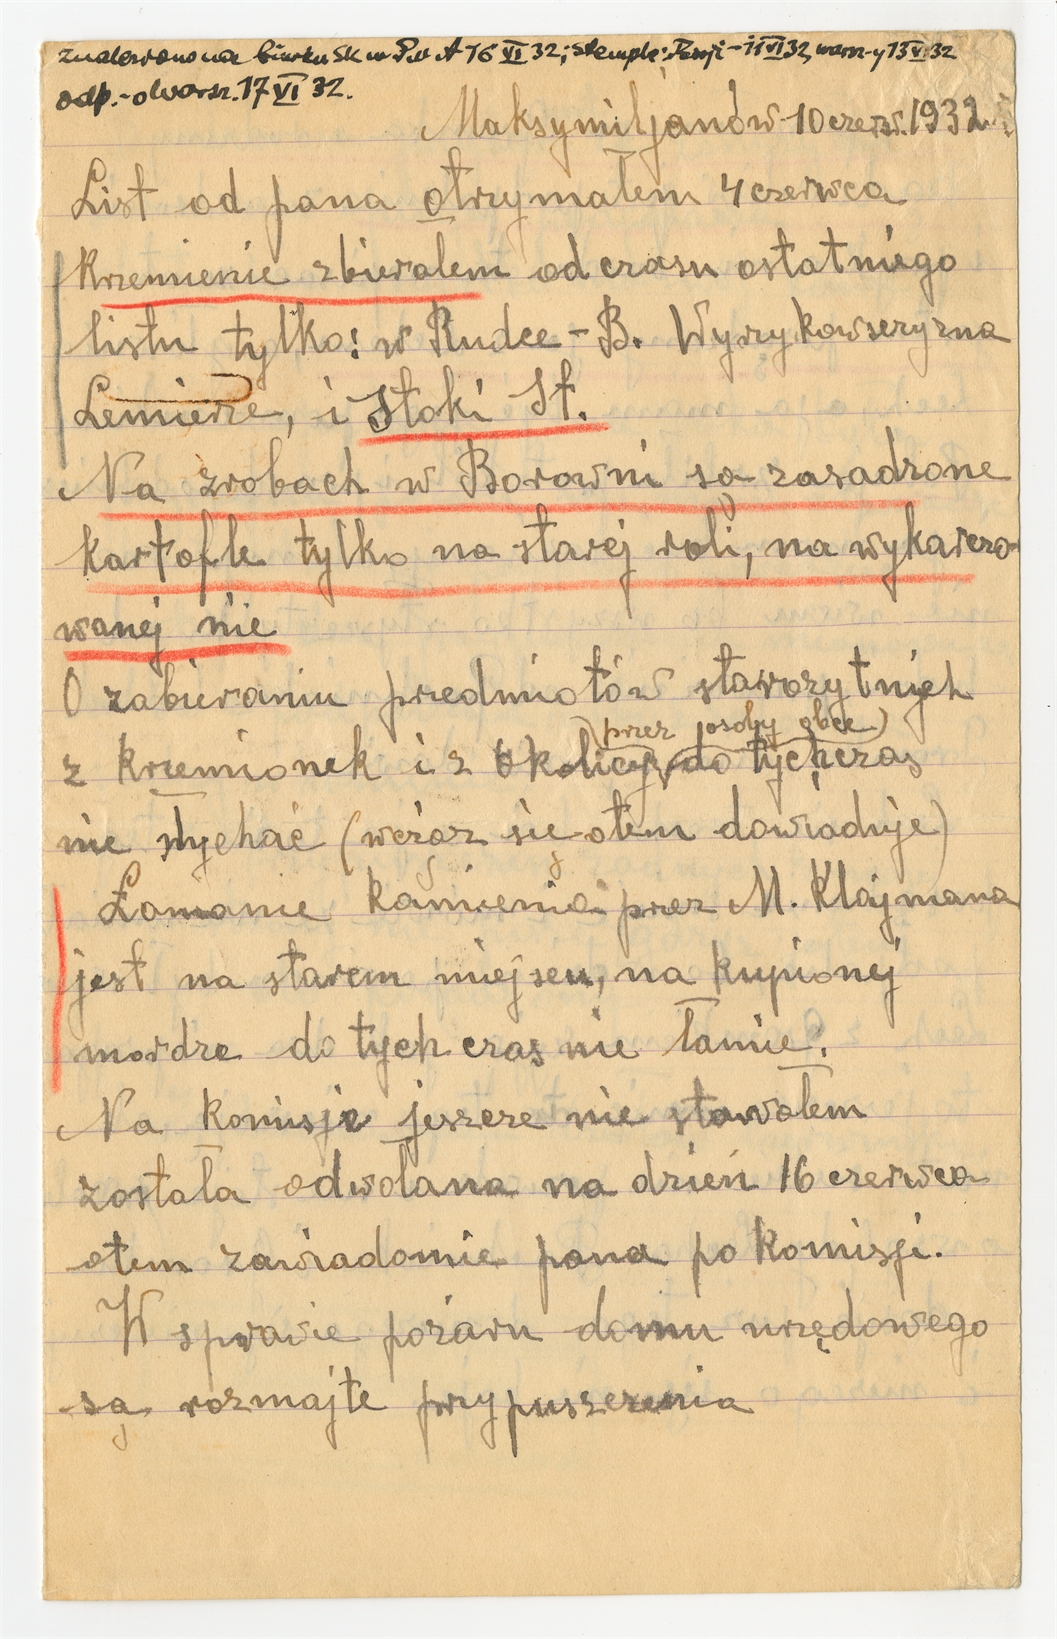 znaleziono na biurku Sk w P.M.A 16 VI 32; stemple: - 11 VI 32, warsz-y 13 VI 32
odp. - z Warsz. 17 VI 32.
Maksymiljanów 10 czerw. 1932
List od pana otrzymałem 4 czerwca
krzemienie zbierałem od czasu ostatniego
listu tylko: w Rudce - B. Wyrzykowszczyzna
Lemierze, i Stoki St.
Na zrobach w Borowni są zasadzone
kartofle tylko na starej roli, na wykarczo-
wanej nie
O zabieraniu przedmiotów starożytnych
(przez osoby obce)
z krzemionek i z okolicy do tychczas
nie słychać (wciąż się otem dowiaduje)
Łamanie kamienia przez M. Klajmana
jest na starem miejscu, na kupionej
mordze do tych czas nie łamie.
Na komisje jeszcze nie stawałem
została odwołana na dzień 16 czerwca
otem zawiadomie pana po komisji.
W sprawie pożaru domu urzędowego
są rozmajte przypuszczenia